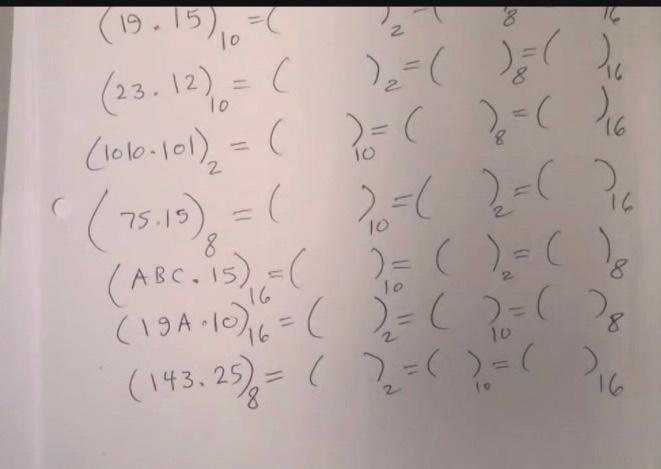 (19.15)₁₀ = (      )₂ = (      )₈ = (      )₁₆
(23.12)₁₀ = (      )₂ = (      )₈ = (      )₁₆
(1010.101)₂ = (      )₁₀ = (      )₈ = (      )₁₆
(75.15)₈ = (      )₁₀ = (      )₂ = (      )₁₆
(ABC.15)₁₆ = (      )₁₀ = (      )₂ = (      )₈
(19A.10)₁₆ = (      )₂ = (      )₁₀ = (      )₈
(143.25)₈ = (      )₂ = (      )₁₀ = (      )₁₆